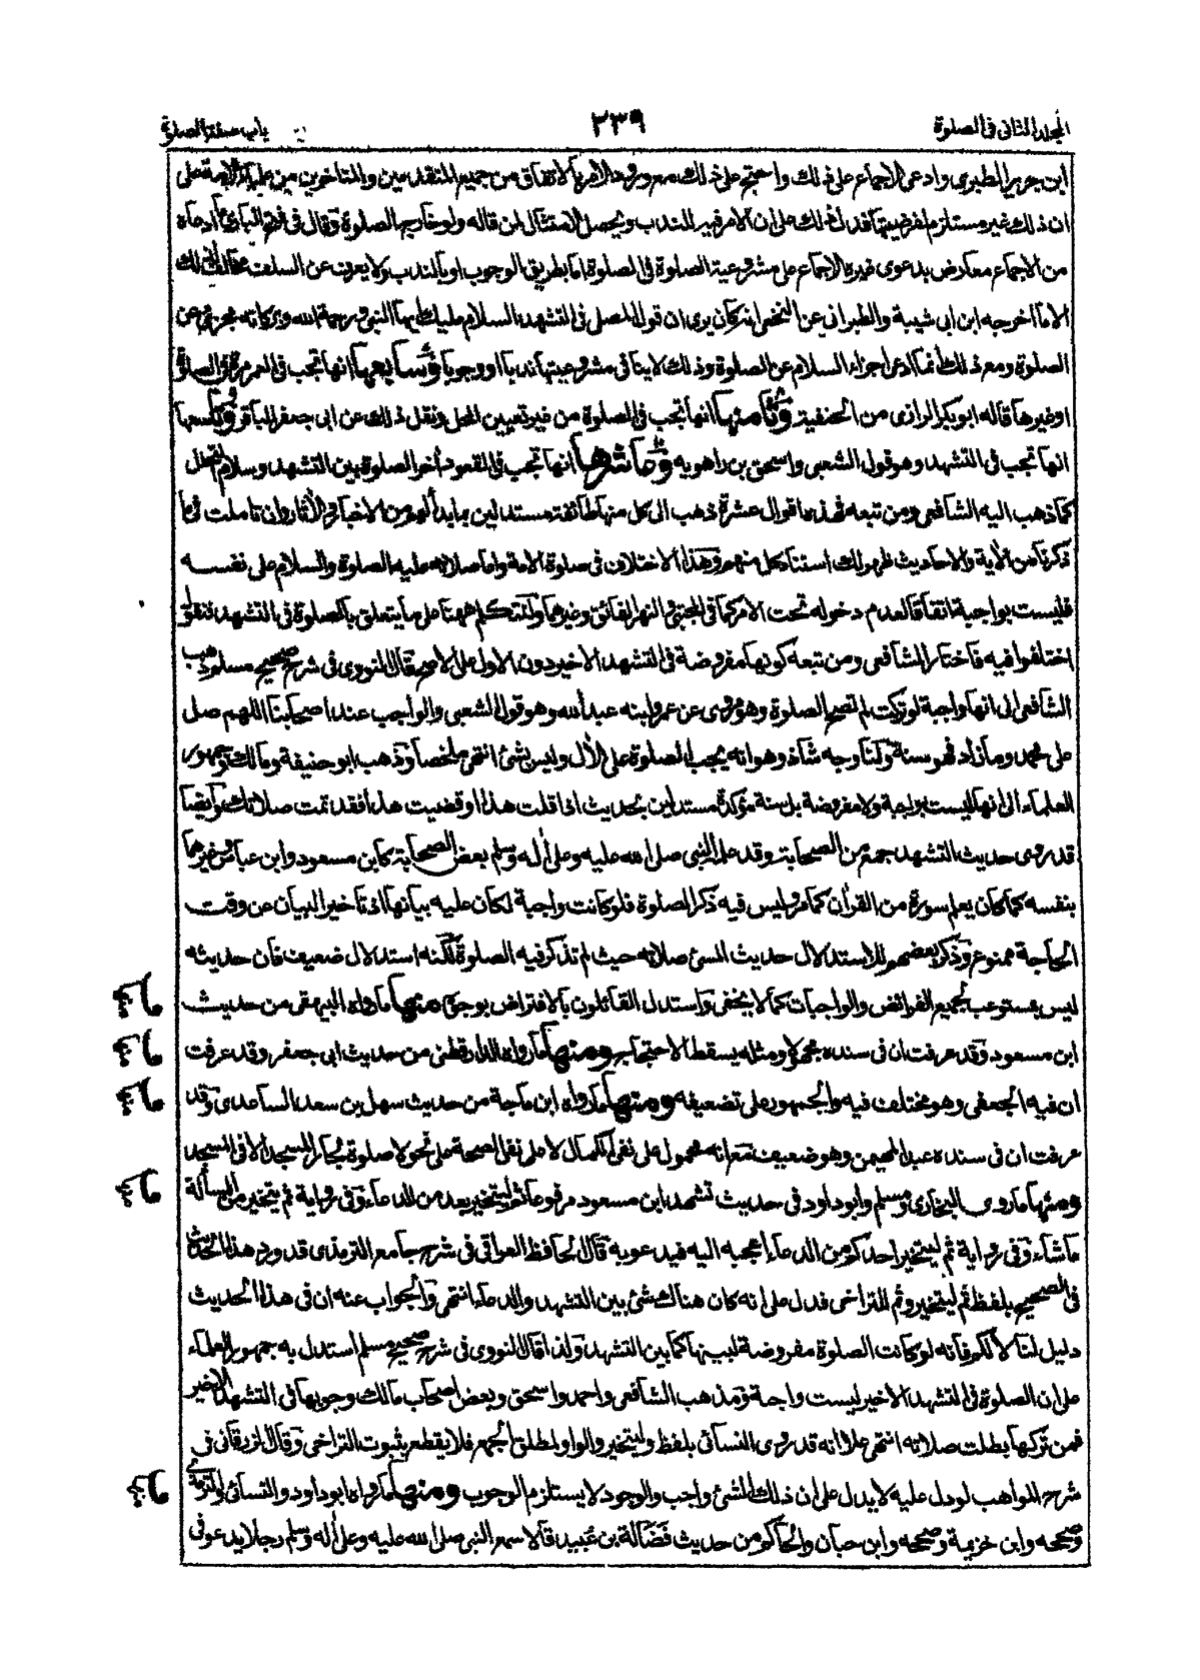 المجلد الثانى فى الصلوة
٢٣٩
باب صفة الصلوة
ابن جرير الطبرى وادعى الاجماع على ذلك واحتج على ذلك مع ورود الامر بالاتفاق من جميع المتقدمين والمتاخرين من علماء الامة على
ان ذلك غير مستلزم لفرضيتها فدل ذلك على ان الامر فيه للندب ويحصل الامتثال لمن قاله ولو خارج الصلوة وقال فى فتح البارى ما ادعاه
من الاجماع معارض بدعوى غيره الاجماع على مشروعية الصلوة فى الصلوة اما بطريق الوجوب او بالندب ولا يعرف عن السلف مخالف لذلك
الا ما اخرجه ابن ابى شيبة والطبرانى عن النخعى انه كان يرى ان قول المصلى فى التشهد السلام عليك ايها النبى ورحمة الله وبركاته مجزئ عن
الصلوة ومع ذلك انما ادعى اجزاء السلام عن الصلوة وذلك لا ينافى مشروعيتها ندبا او وجوبا وسابعها انها تجب فى العمر مرة فى الصلوة
او غيرها قاله ابو بكر الرازى من الحنفية وثامنها انها تجب فى الصلوة من غير تعيين المحل ونقل ذلك عن ابى جعفر الباقر وتاسعها
انها تجب فى التشهد وهو قول الشعبى واسحق بن راهويه وعاشرها انها تجب فى القعود اخر الصلوة بين التشهد وسلام التحلل
كما ذهب اليه الشافعى ومن تبعه فهذه اقوال عشرة ذهب الى كل منها طائفة مستدلين بما بدألهم من الاخبار والأثار وان تاملت فيما
ذكرنا من الأية والاحاديث ظهر لك استناد كل منهم وهذا الاختلاف فى صلوة الامة واما صلاته عليه الصلوة والسلام على نفسه
فليست بواجبة اتفاقا لعدم دخوله تحت الامر كما فى المجتبى والنهر الفائق وغيرها ولنتكلم ههنا على ما يتعلق بالصلوة فى التشهد فنقول
اختلفوا فيه فاختار الشافعى ومن تبعه كونها مفروضة فى التشهد الاخير دون الاول على الاصح قال النووى فى شرح صحيح مسلم ذهب
الشافعى الى انها واجبة لو تركت لم تصح الصلوة وهو مروى عن عمر وابنه عبد الله وهو قول الشعبى والواجب عند اصحابنا اللهم صل
على محمد وما زاد فهو سنة ولنا وجه شاذ وهو انه يجب الصلوة على الأل وليس بشئ انتهى ملخصا وذهب ابو حنيفة ومالك وجمهور
العلماء الى انها ليست بواجبة ولا مفروضة بل سنة مؤكدة مستدلين بحديث اذا قلت هذا او قضيت هذا فقد تمت صلاتك وايضا
قد روى حديث التشهد جمع من الصحابة وقد علم النبى صلى الله عليه وعلى أله وسلم بعض الصحابة كابن مسعود وابن عباس وغيرهما
بنفسه كما كان يعلم سورة من القرأن كما مر وليس فيه ذكر الصلوة فلو كانت واجبة لكان عليه بيانها اذ تاخير البيان عن وقت
الحاجة ممنوع وذكر بعضهم للاستدلال حديث المسئ صلاته حيث لم تذكر فيه الصلوة لكنه استدلال ضعيف فان حديثه
ليس بمستوعب لجميع الفرائض والواجبات كما لا يخفى واستدل القائلون بالافتراض بوجوه منها ما رواه البيهقى من حديث
ابن مسعود وقد عرفت ان فى سنده مجهولا ومثله يسقط الاحتجاج به ومنها ما رواه الدارقطنى من حديث ابى جعفر وقد عرفت
ان فيه الجعفى وهو مختلف فيه والجمهور على تضعيفه ومنها ما رواه ابن ماجة من حديث سهل بن سعد الساعدى وقد
عرفت ان فى سنده عبد المهيمن وهو ضعيف مع انه محمول على نفى الكمال لا على نفى الصحة على نحو لا صلوة لجار المسجد الا فى المسجد
ومنها ما روى البخارى ومسلم وابو داود فى حديث تشهد ابن مسعود مرفوعا ثم ليتخير بعد من الدعاء وفى رواية ثم يتخير من المسألة
ما شاء وفى رواية ثم ليتخير احدكم من الدعاء اعجبه اليه فيدعو به قال الحافظ العراقى فى شرح جامع الترمذى قد ورد هذا الحديث
فى الصحيح بلفظ ثم ليتخير وثم للتراخى فدل على انه كان هناك شئ بين التشهد والدعاء انتهى والجواب عنه ان فى هذا الحديث
دليل لنا لا لكم فانه لو كانت الصلوة مفروضة لبينها كما بين التشهد ولذا قال النووى فى شرح صحيح مسلم استدل به جمهور العلماء
على ان الصلوة فى التشهد الاخير ليست واجبة ومذهب الشافعى واحمد واسحق وبعض اصحاب مالك وجوبها فى التشهد الاخير
فمن تركها بطلت صلاته انتهى على انه قد روى النسائى بلفظ وليتخير والواو لمطلق الجمع فلا يقطع بثبوت التراخى وقال الزرقانى فى
شرح المواهب لو دل عليه لا يدل على ان ذلك الشئ واجب والوجود لا يستلزم الوجوب ومنها ما رواه ابو داود والنسائى والترمذى
وصححه وابن خزيمة وصححه وابن حبان والحاكم من حديث فضالة بن عبيد قال سمع النبى صلى الله عليه وعلى أله وسلم رجلا يدعو فى